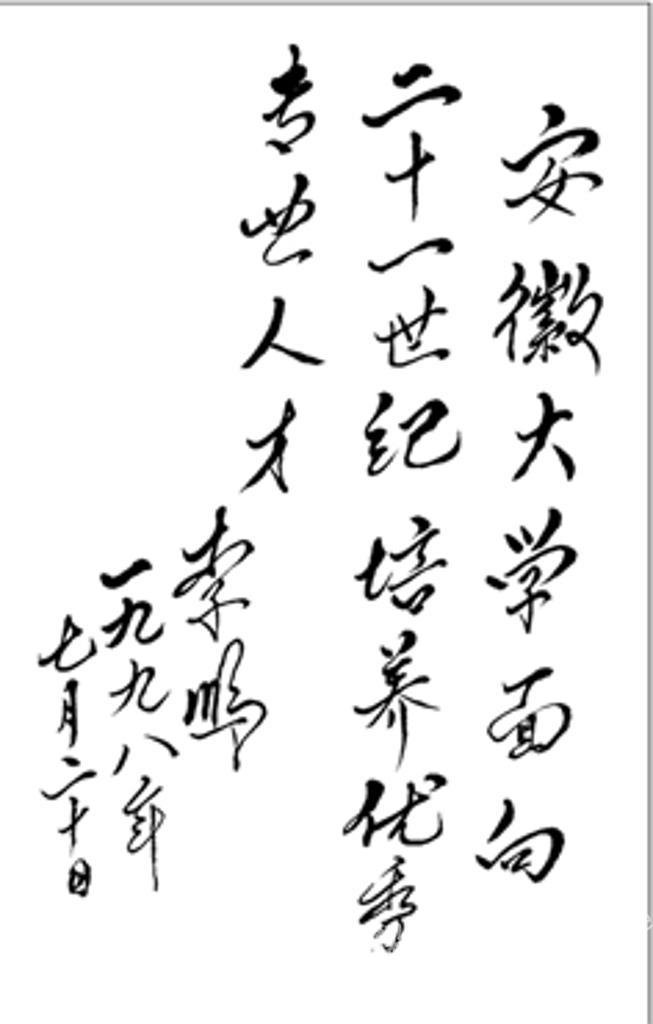 安徽大学面向
二十一世纪培养优秀
专业人才
李鹏
一九九八年
七月二十日